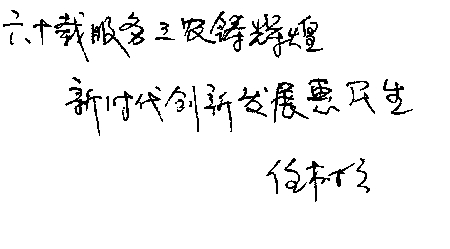 六十载服务三农铸辉煌
新时代创新发展惠民生